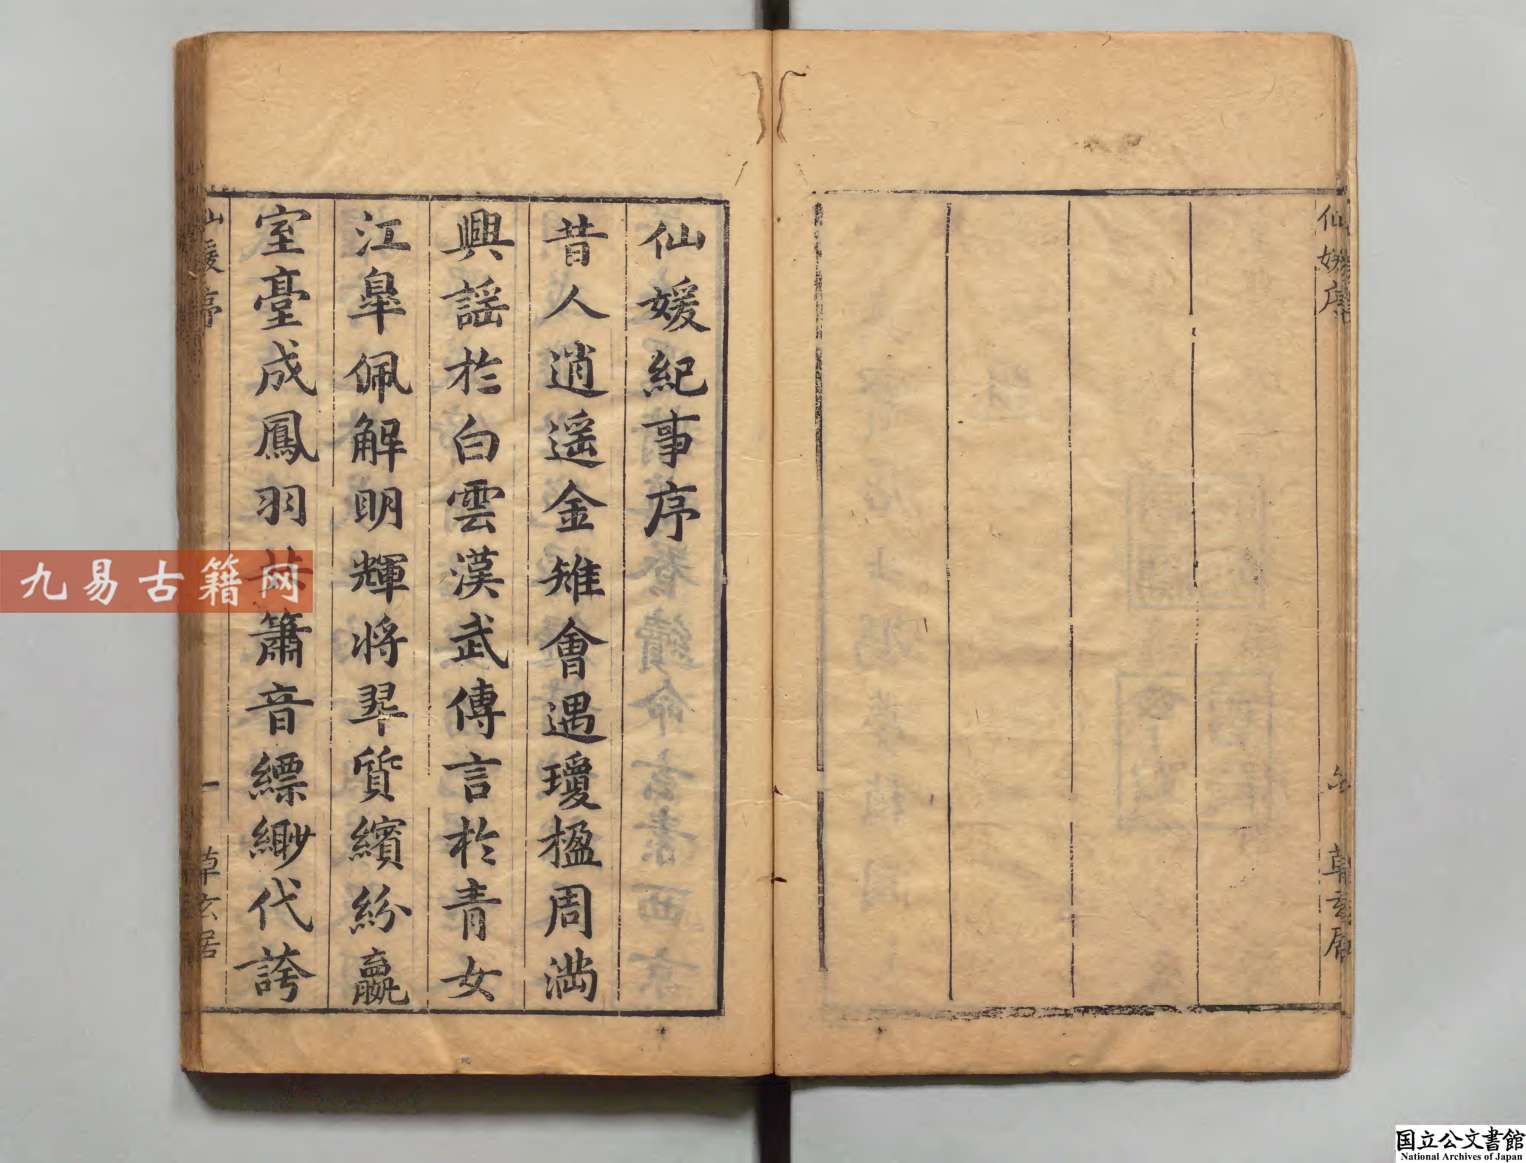 仙媛序
六
草玄居
仙媛紀事序
昔人逍遥金雉會遇瓊楹周満
興謡於白雲漢武傳言於青女
江臯佩解明輝將翠質繽紛嬴
室臺成鳳羽共簫音縹緲代誇
仙媛序
一
草玄居
九易古籍网
国立公文書館
National Archives of Japan